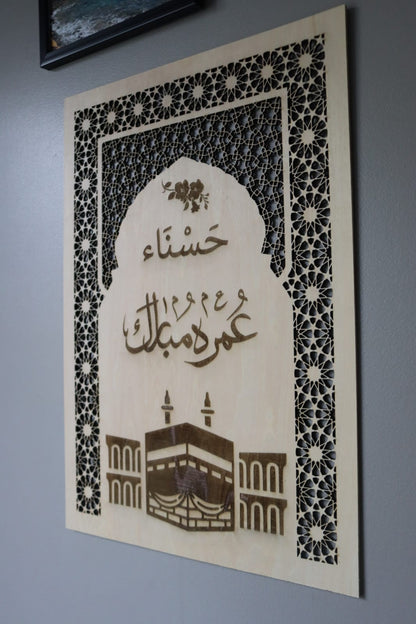 حَسْنَاء
عُمره مُبارك